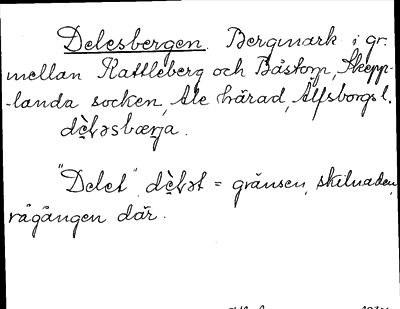 Delesbergen. Bergmark i gr.
mellan Kattleberg och Båstorp, Skepp-
-landa socken, Ale härad, Älfsborgs l.
"Delet", = gränsen, skilnaden,
rågången där.